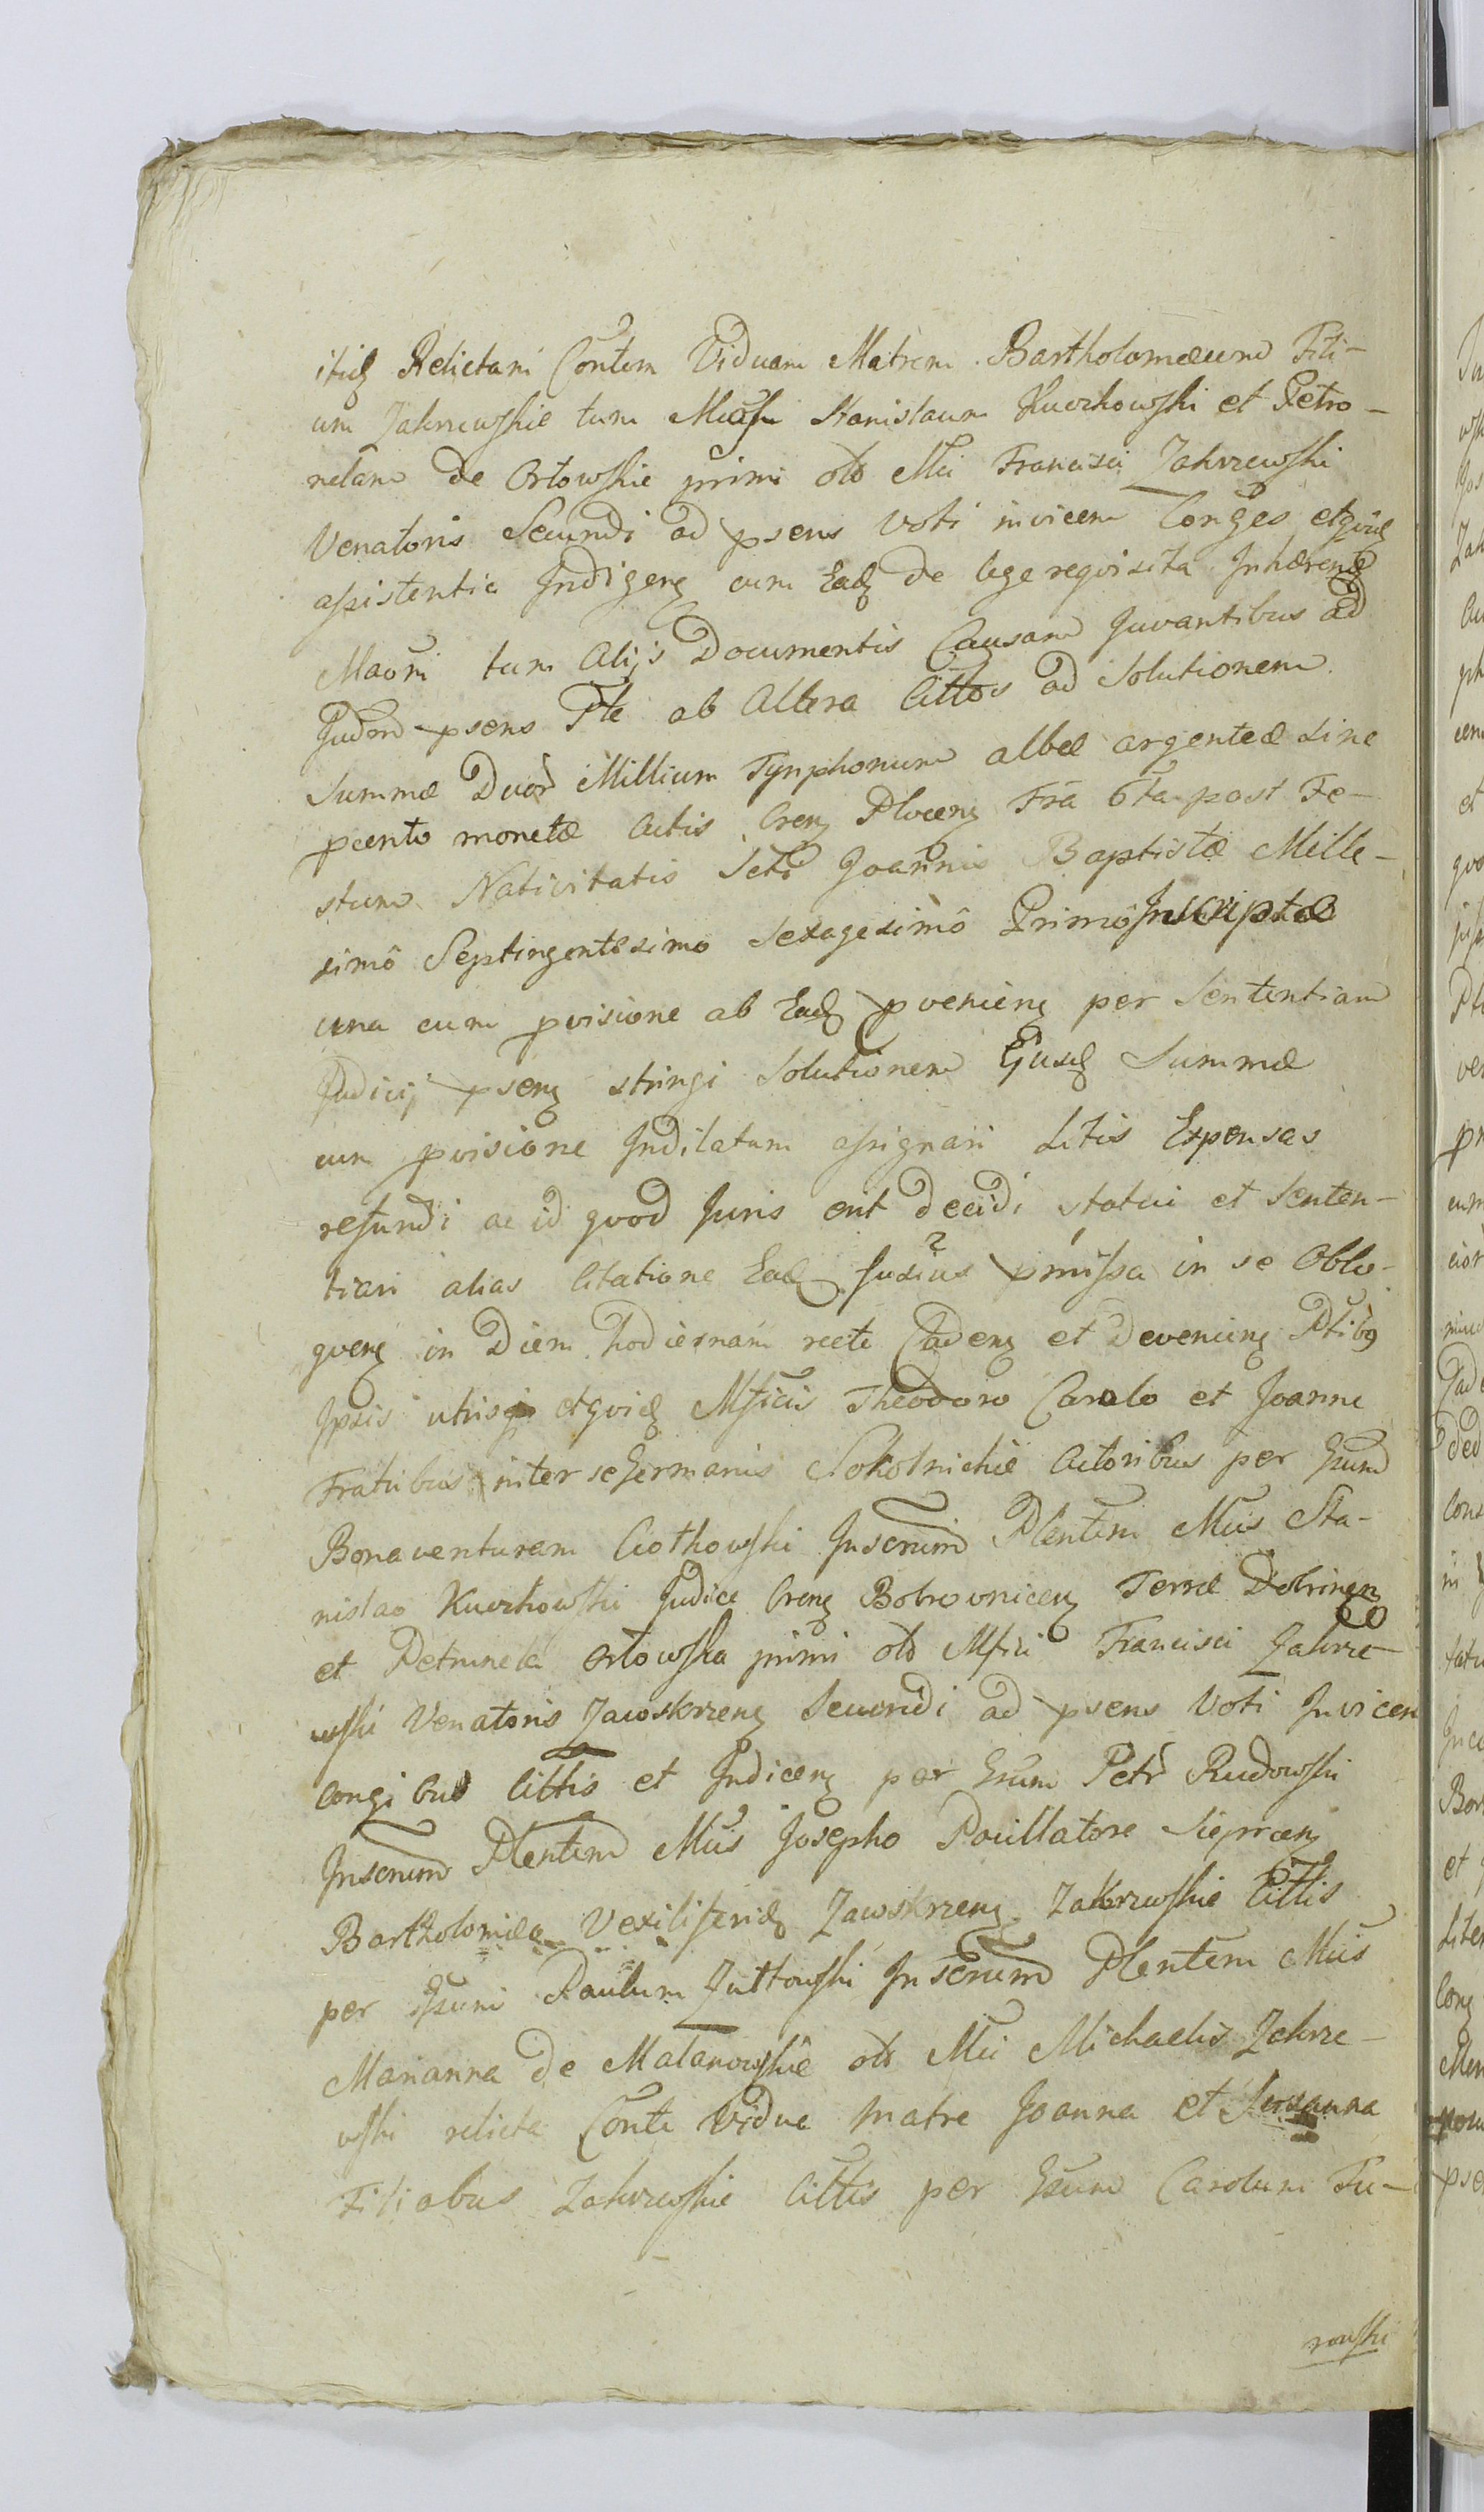 itidq Relictam Contem Viduam Matrem Bartholomæum Fili-
um Zakrzewskie tum Stanislaum Kuczkowski et Petro-
nelam de Orłowskie primi olo Mci Francisci Zakrzewski
Venatoris Secundi ad psens Voti invicem Conges etqvidq
assistentia Indigenq cum Eadq de lege reqvisita Inhærendo
Maõni tum Alijs Documentis Causam Juvantibus ad
Judm psens Pte ab Altera Cittos ad Solutionem
Summæ Duor Millium Tynphonum albæ argenteæ sine
pcento monetæ Actis Crenq Plocenq Fra 6ta post Fe-
stum Nativitatis Scti Joannis Baptistæ Mille-
simô Septingentesimo Sexagesimô Primô Inscriptæ
una cum pvisione ab Eadq pvenienq per Sententiam
Judicij psenq stringi Solutionem Ejusdq Summæ
cum pvisione Indilatam assignari Litis Expensas
refundi ac id qvod Juris erit decidi statui et Senten-
tiari alias Citatione Eadq fusius pmissa in se Oblo-
qvenq in Diem hodiernam recte Cadenq et Devenienq Ptibq
Ipsis utrisq etqvidq Mficis Theodoro Carolo et Joanne
Fratribus inter se Germanis Sokolnickie Actoribus per Gsum
Bonaventuram Ciołkowski Inserum Plentem Mcis Sta-
nislao Kuczkowski Judice Crenq Bobrovnicenq Terræ Dobrinenq
et Petrunela Orłowska primi olo Mfici Francisci Zakrze-
wski Venatoris Zawskrzenq Secundi ad psens Voti Invicem
congibus Cittis et Indicenq per Gsum Petr Rudowski
Inserum Plentem Mcis Josepho Pocillatore Sieprcenq
Bartholomeo Vexiliferidq Zawskrzenq Zakrzewskie Cittis
per Gsum Paulum Żułtowski Inserum Plentem Mcis
Marianna de Małanowskie olo Mci Michaelis Zakrze-
wski relicta Conte Vidua Matre Joanna et Susanna
Filiabus Zakrzewskie Cittis per Gsum Carolum Tu-
rowski